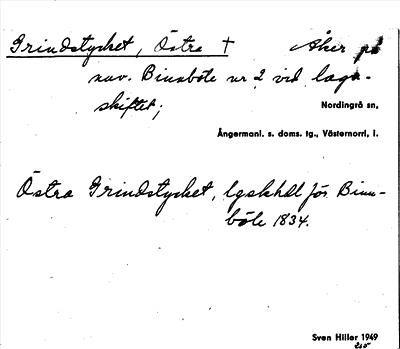 Grindstycket, Östra † Åker på
nuv. Binsböle nr 2 vid laga-
skiftet;
Nordingrå sn,
Ångermanl. s. doms. tg., Västernorrl, l.
Östra Grindstycket, lgskhdl för Binn-
böle 1834.
Sven Hiller 1949